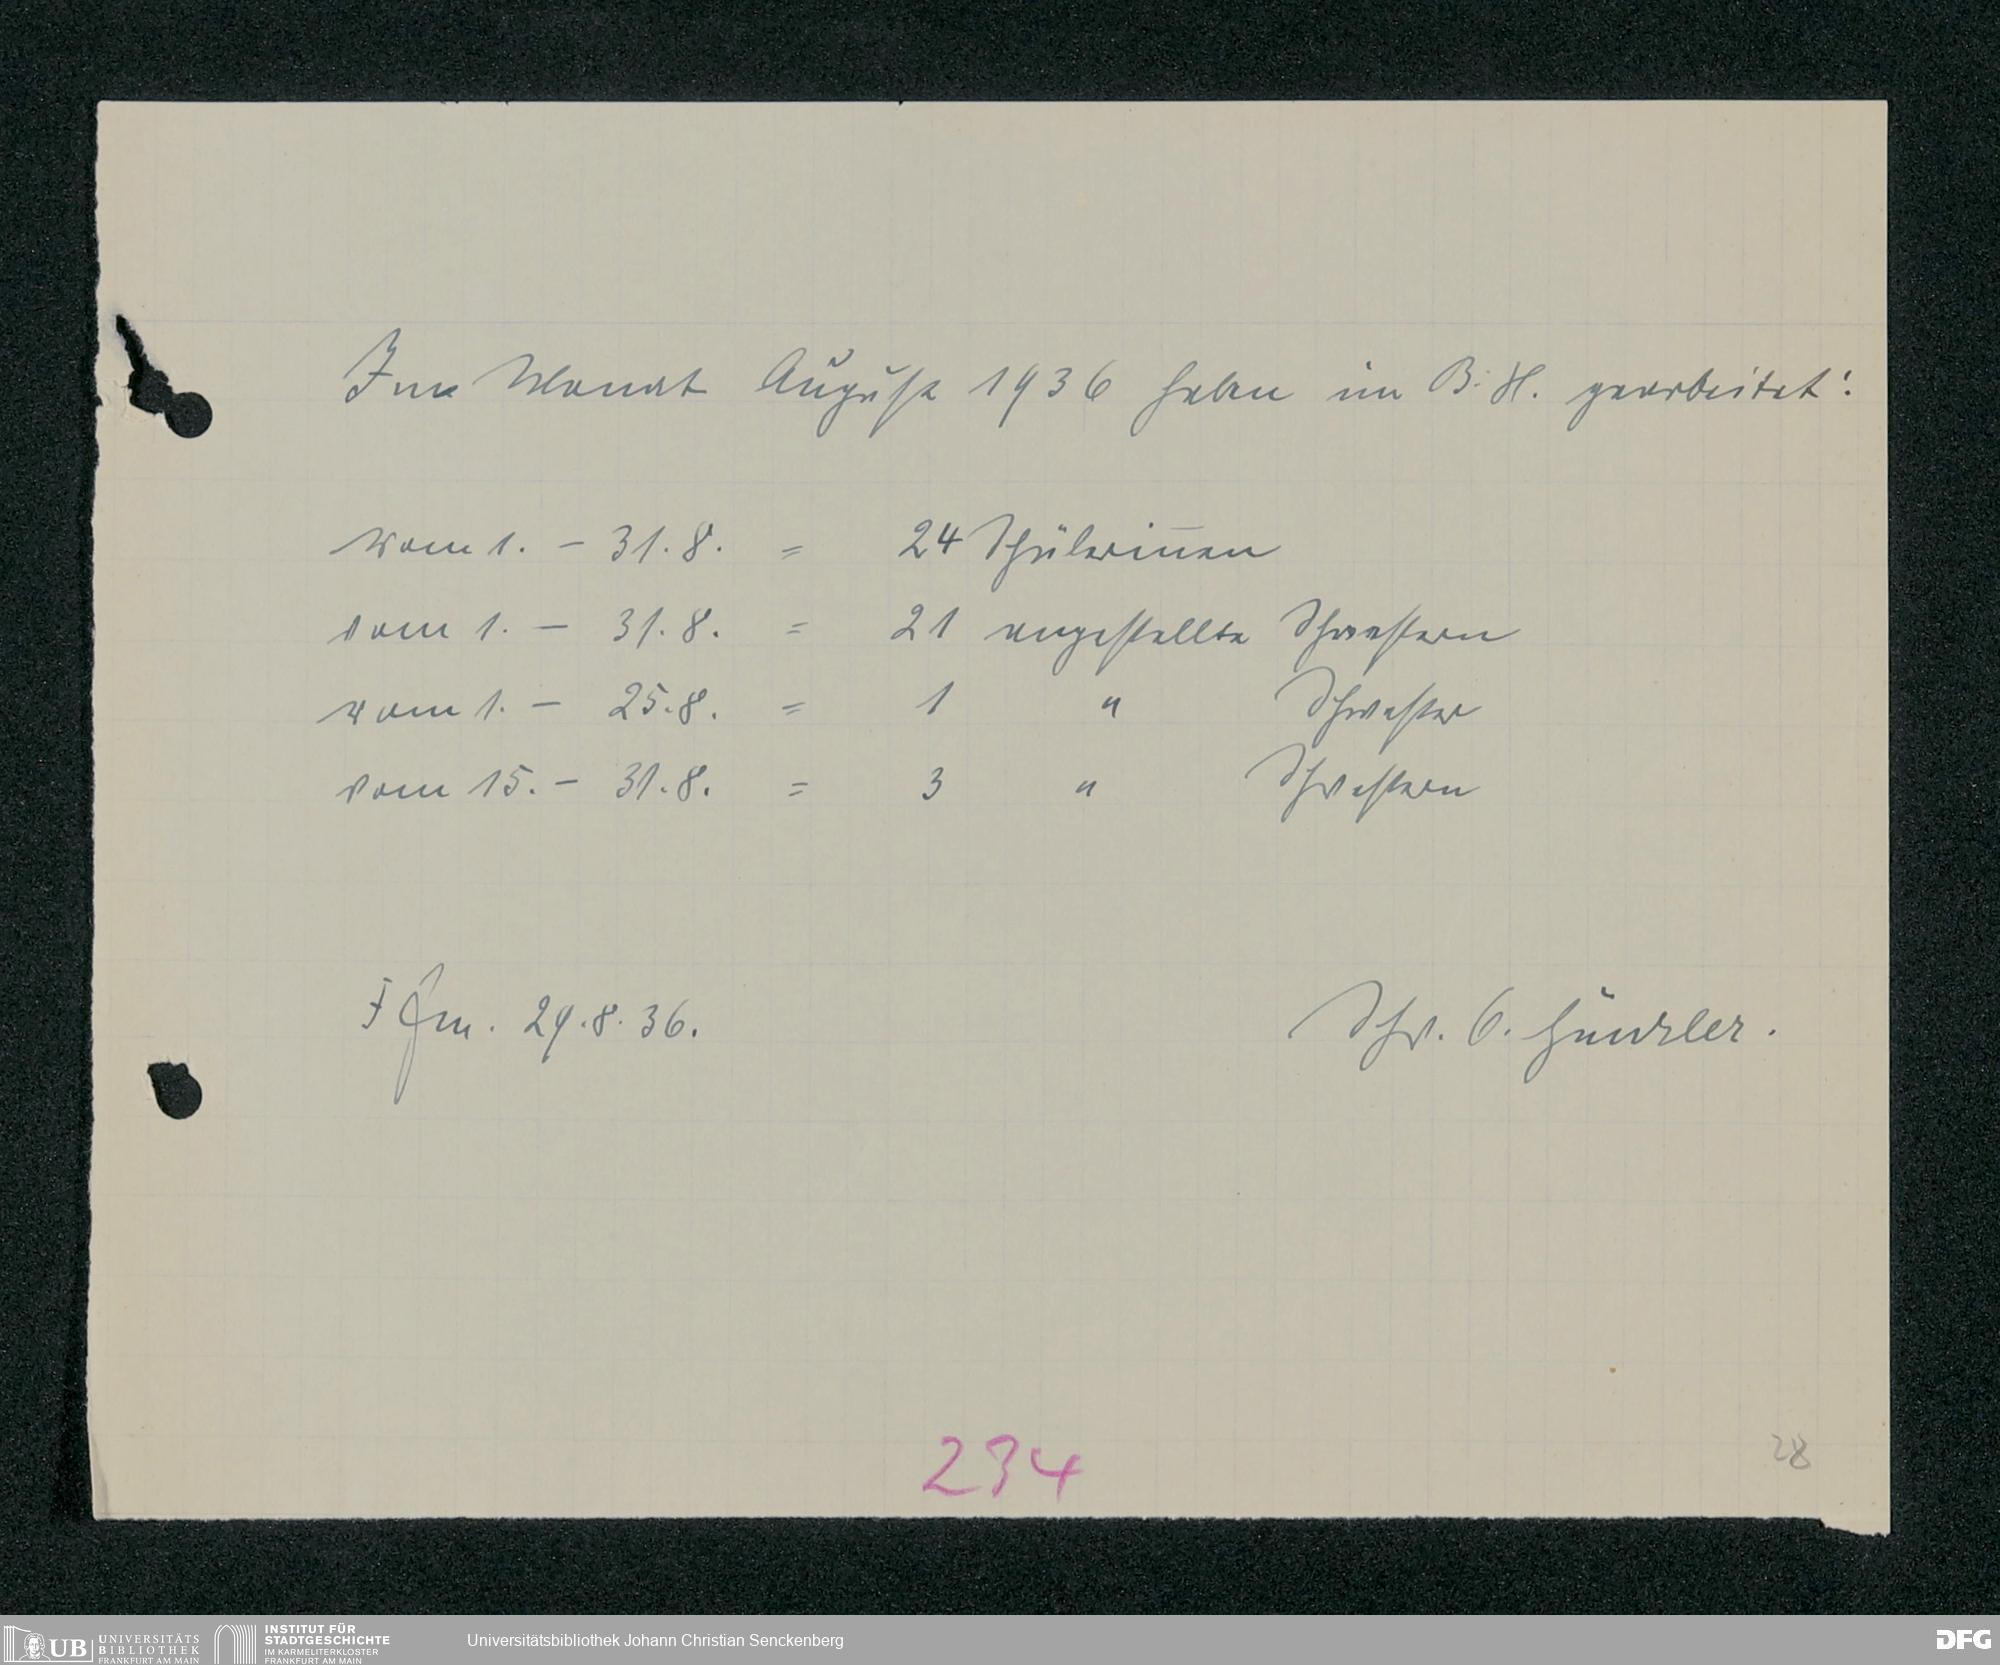 Im Monat August 1936 haben im B. H. gearbeitet:
vom 1. – 31.8. = 24 Schülerin̅en
vom 1. – 31.8. = 21 angestellte Schwestern
vom 1. – 25.8. = 1 " Schwester
vom 15. – 31.8. = 3 " Schwestern
Ffm. 29.8.36.
Schw. O.
234
28
UB UNIVERSITÄTS BIBLIOTHEK FRANKFURT AM MAIN
INSTITUT FÜR STADTGESCHICHTE IM KARMELITERKLOSTER FRANKFURT AM MAIN
Universitätsbibliothek Johann Christian Senckenberg
DFG